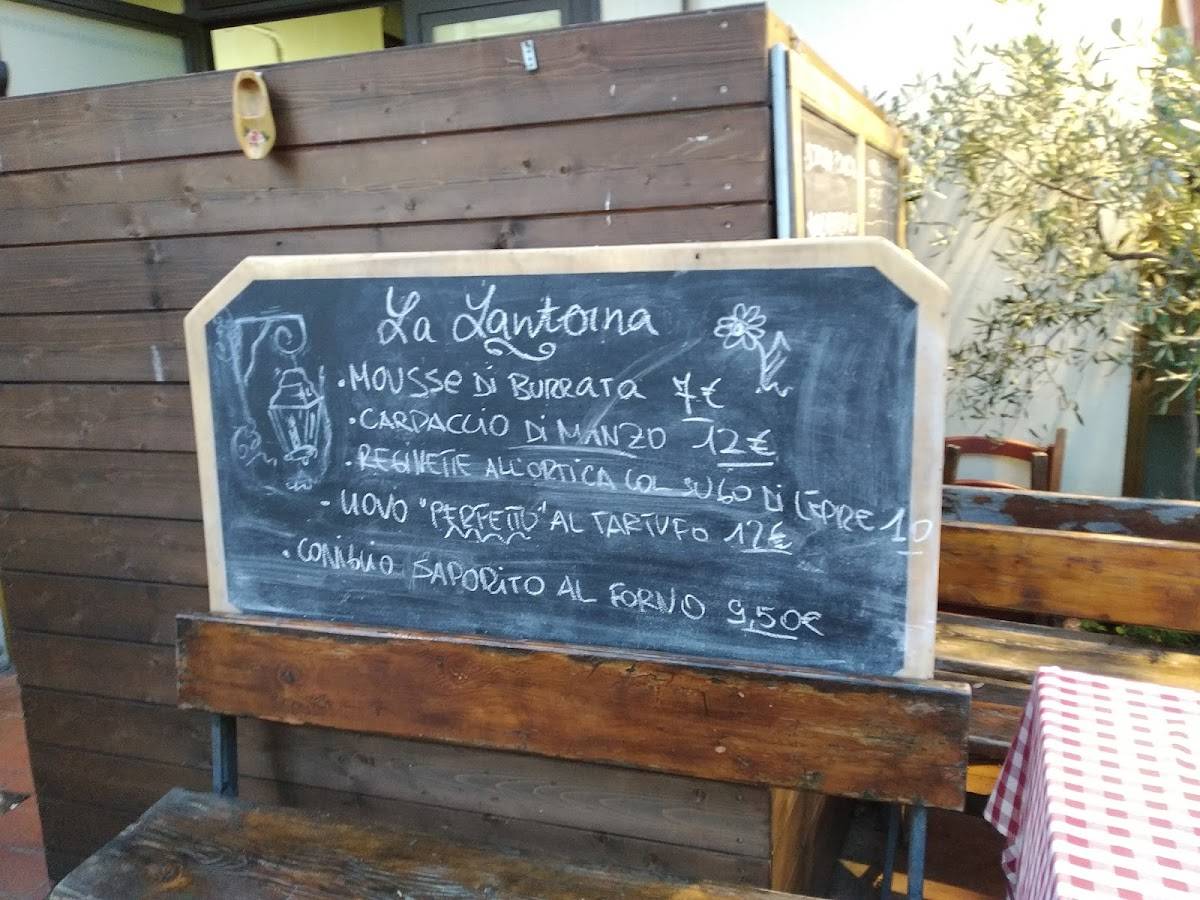 La Lantorna
• MOUSSE DI BURRATA 7€
• CARPACCIO DI MANZO 12€
• REGINETTE ALL'ORTICA COL SUGO DI LEPRE 10
- UOVO "PERFETTO" AL TARTUFO 12€
• CONIGLIO SAPORITO AL FORNO 9,50€